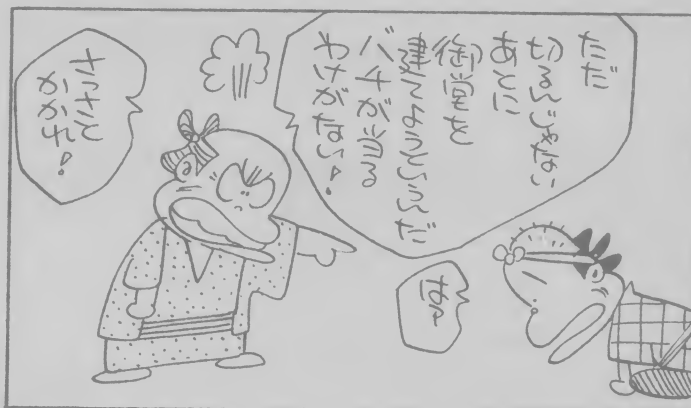 ただ
切るんじゃない
あとに
御堂を
建てようというんだ
バチが当る
わけがない!
さっさと
かかれ!